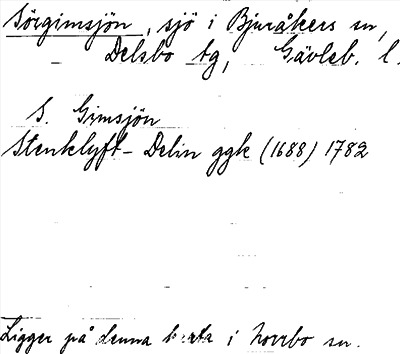 Sörgimsjön, sjö i Bjuråkers sn,
Delsbo tg, Gävleb. l.
S. Gimsjön
Stenklyft-Delin ggk (1688) 1782
Ligger på denna karta i Norrbo sn.